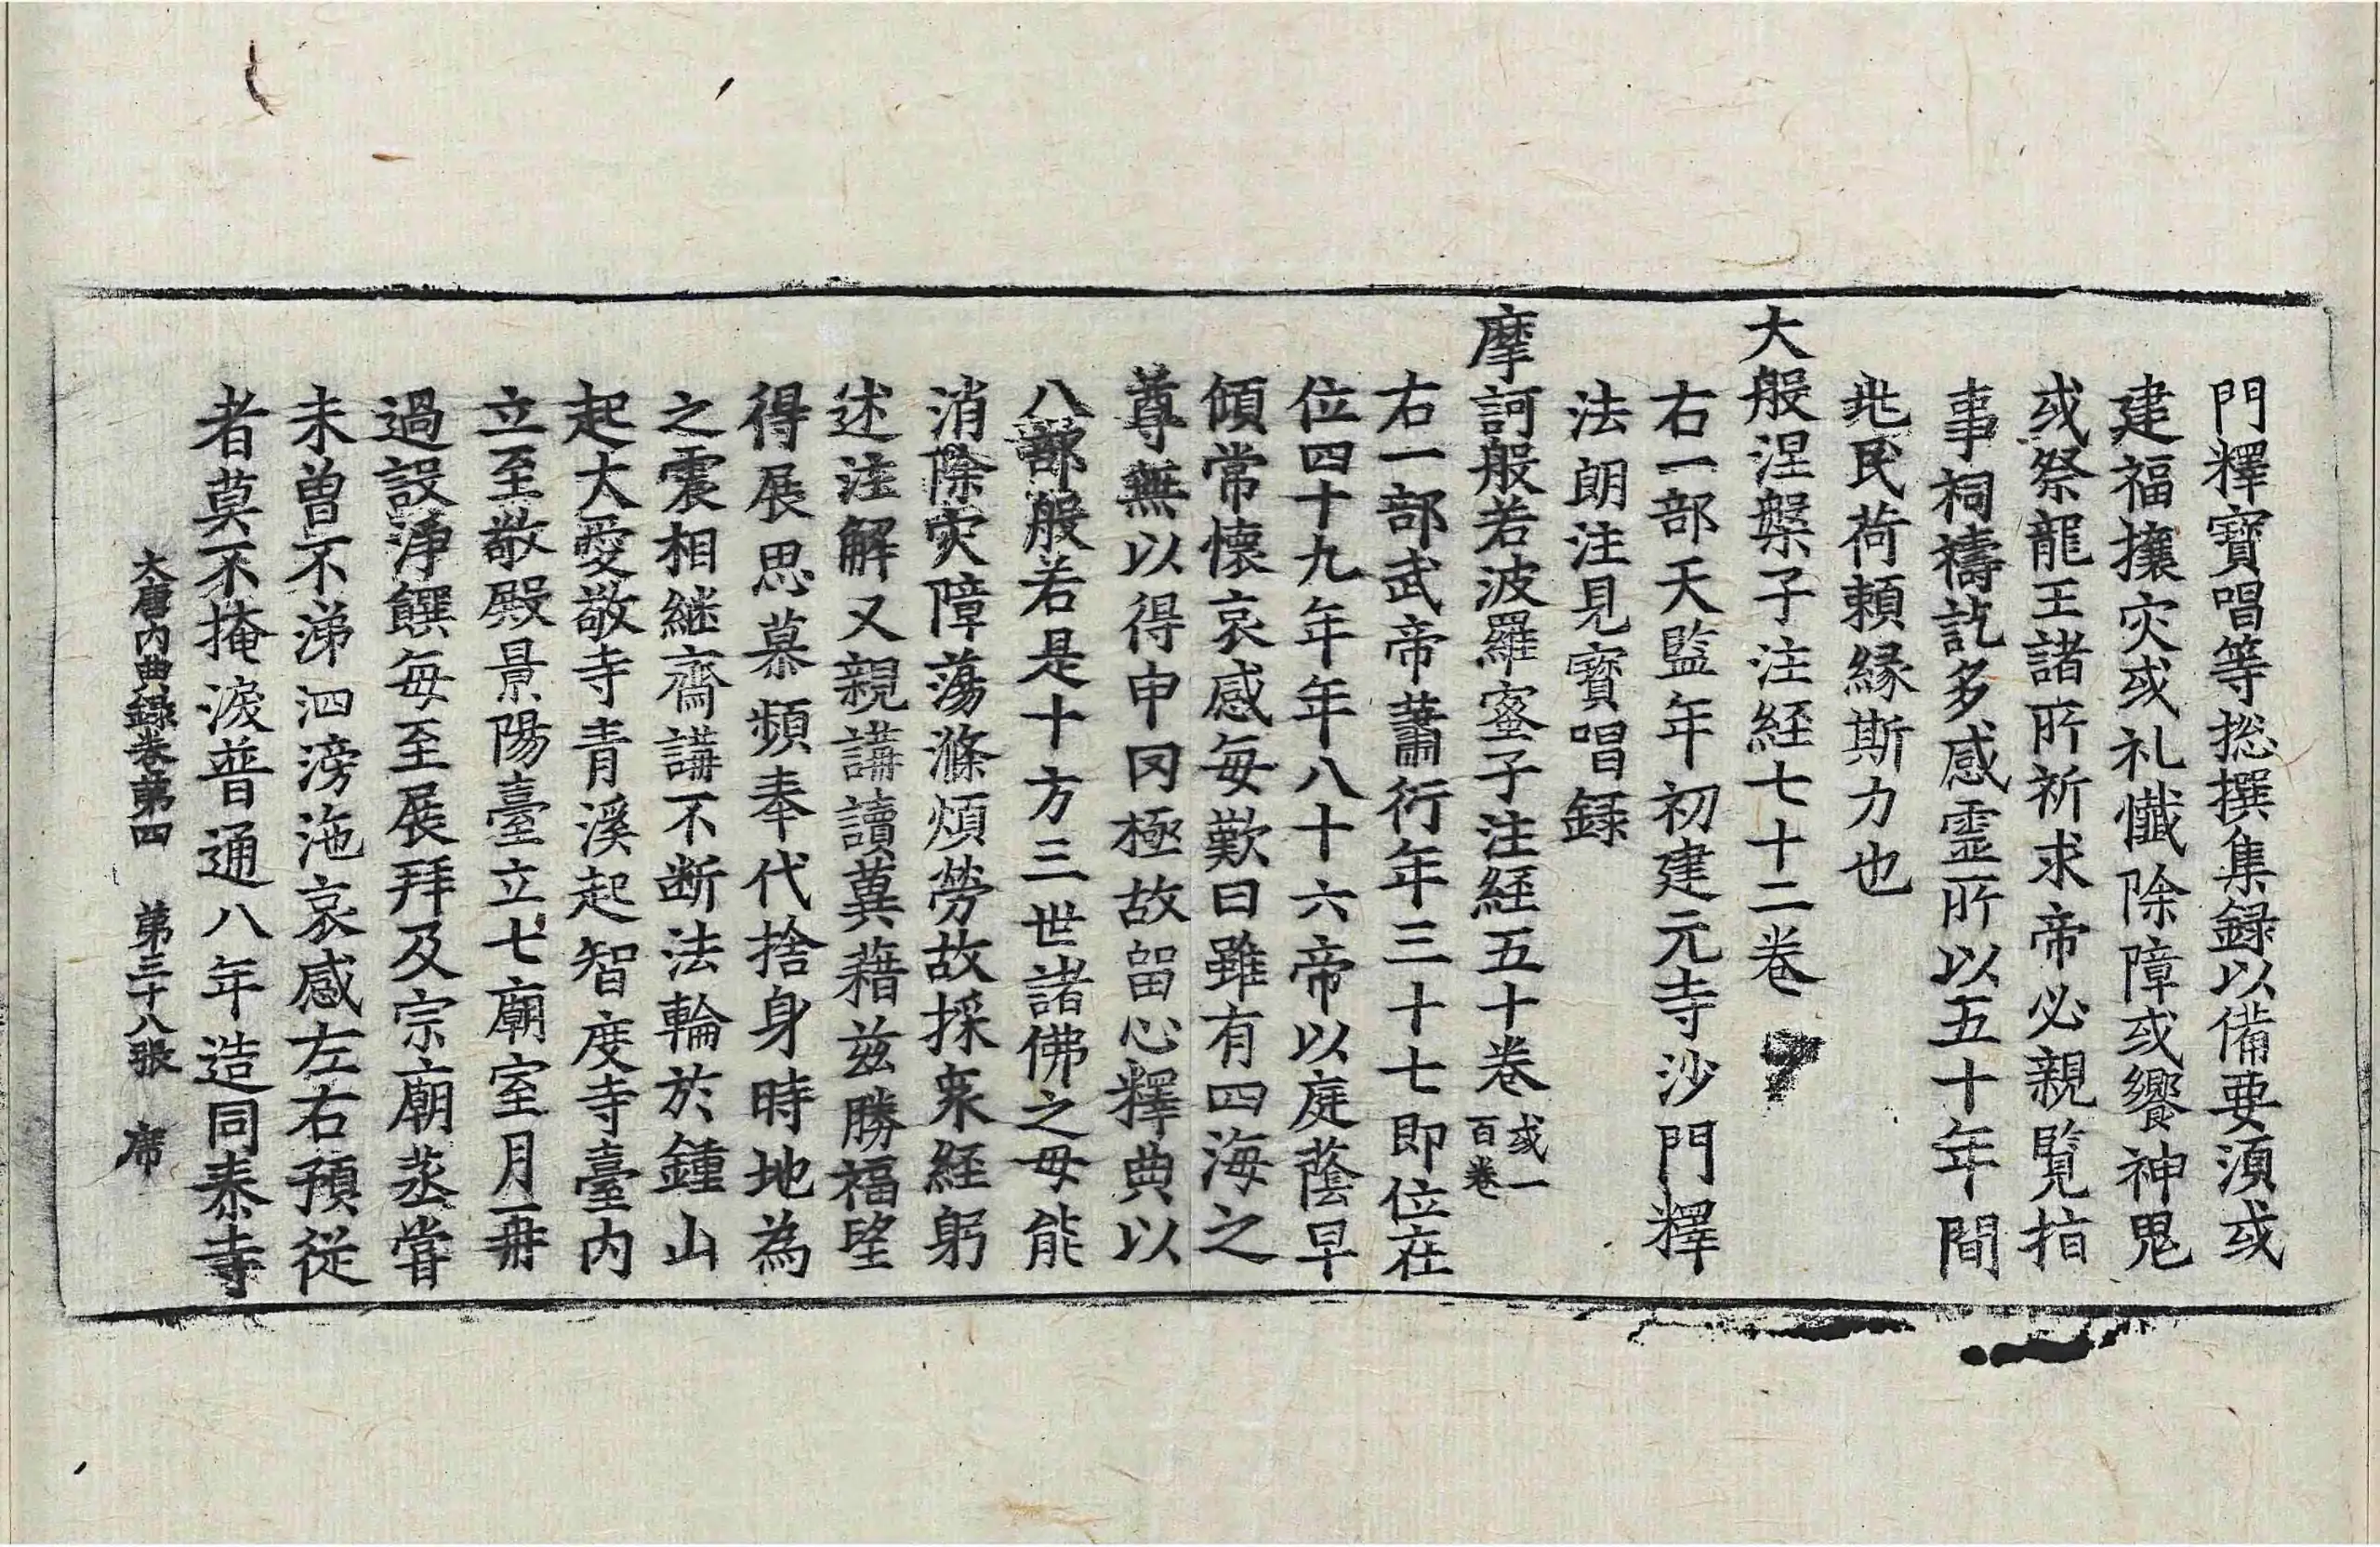 門釋寶唱等揔撰集録以備要湏或
建福攘灾或礼懺除障或饗神鬼
或祭龍王諸所祈求帝必親覧指
事祠禱訖多感霊所以五十年間
兆民荷頼縁斯力也
大般涅槃子注経七十二卷
右一部天監年初建元寺沙門釋
法朗注見寳唱録
摩訶般若波羅蜜子注経五十卷或一百卷
右一部武帝蕭衍年三十七即位在
位四十九年年八十六帝以庭蔭早
傾常懐哀感毎歎曰雖有四海之
尊無以得申罔極故留心釋典以
八部般若是十方三世諸佛之母能
消除灾障蕩滌煩勞故採衆経躬
述注解又親講讀冀藉兹勝福望
得展思慕頻奉代捨身時地為
之震相継齋講不断法輪於鍾山
起大愛敬寺青溪起智度寺臺内
立至敬殿景陽臺立七廟室月一再
過設淨饌毎至展拜及宗廟蒸嘗
未曽不涕泗滂沲哀感左右預従
者莫不掩淚普通八年造同泰寺
大唐内典録卷第四　第三十八張　席